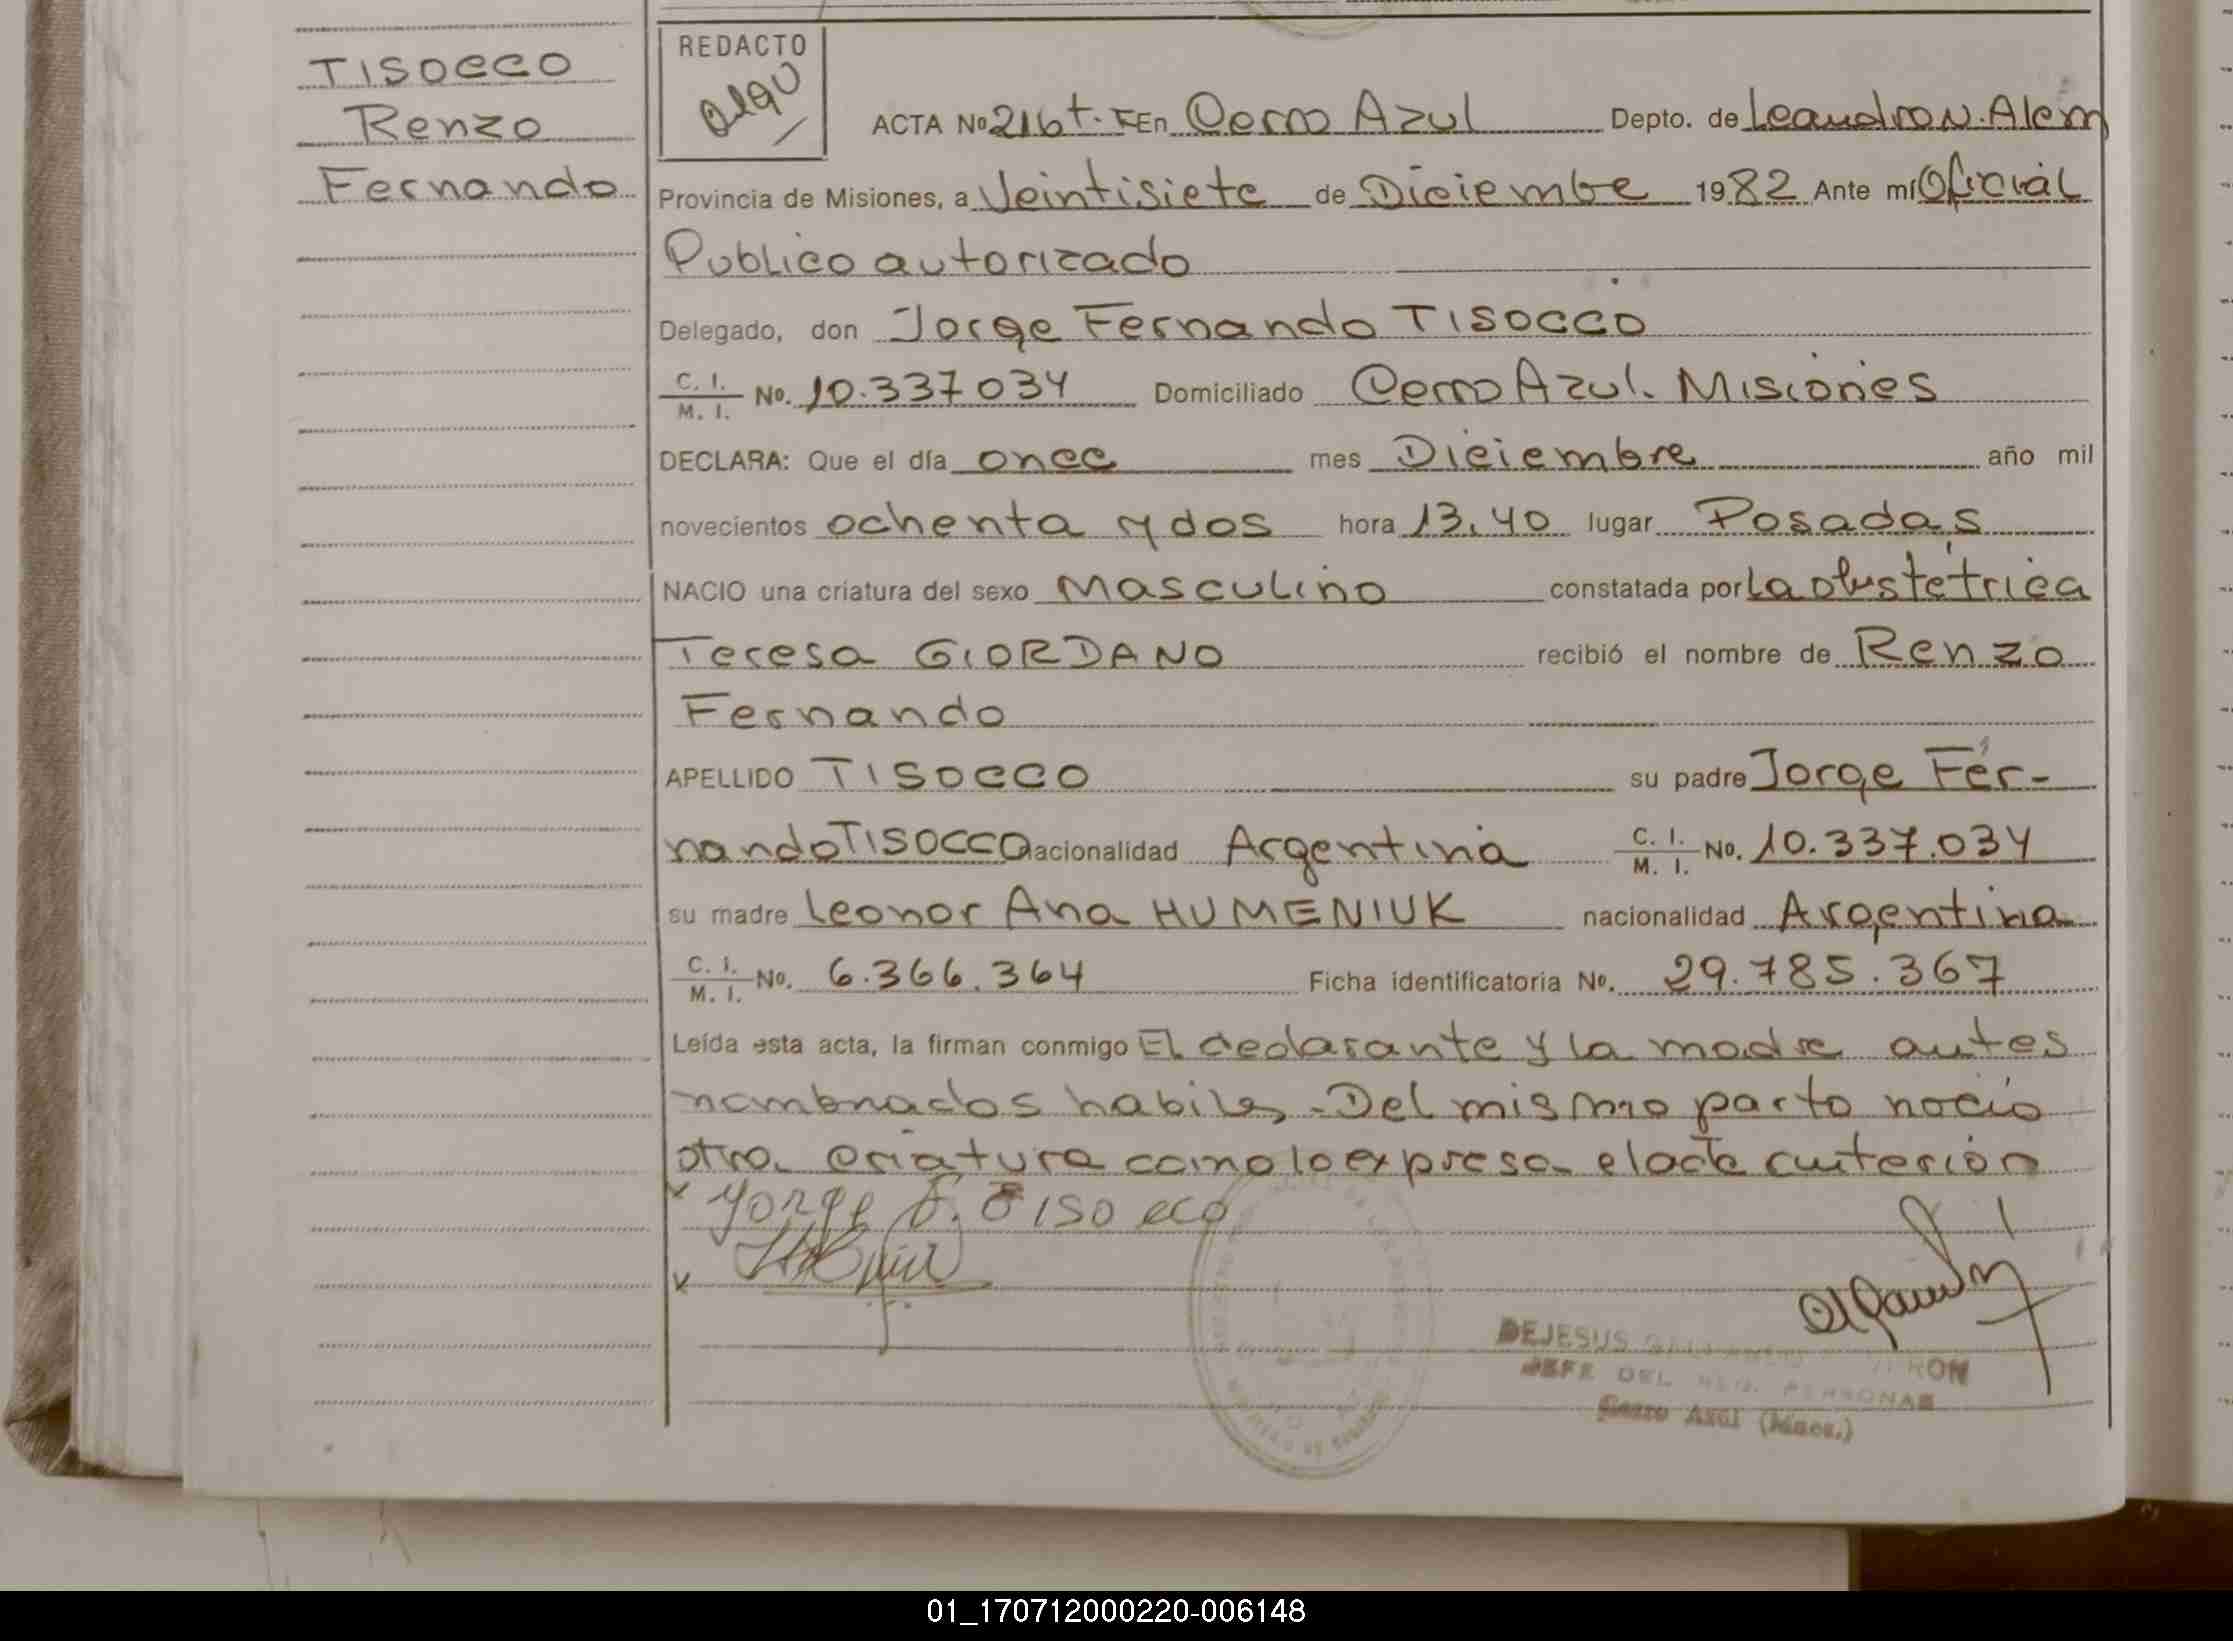 TISOCCO
Renzo
Fernando
REDACTO
ACTA No 216 t. En Cerro Azul Depto. de Leandro N. Alem
Provincia de Misiones, a Veintisiete de Diciembre 1982 Ante mí Oficial
Publico autorizado
Delegado, don Jorge Fernando TISOCCO
C. I. / M. I. No. 10.337034 Domiciliado Cerro Azul. Misiones
DECLARA: Que el día once mes Diciembre año mil
novecientos ochenta y dos hora 13,40 lugar Posadas
NACIO una criatura del sexo Masculino constatada por La obstétrica
Teresa GIORDANO recibió el nombre de Renzo
Fernando
APELLIDO TISOCCO su padre Jorge Fer-
nando TISOCCO nacionalidad Argentina C. I. / M. I. No. 10.337.034
su madre Leonor Ana HUMENIUK nacionalidad Argentina
C. I. / M. I. No. 6.366.364 Ficha identificatoria No. 29.785.367
Leída esta acta, la firman conmigo El declarante y la madre antes
nombrados habiles. Del mismo parto nacio
otra criatura como lo expresa el acta anterior
Jorge F. Tisocco
DEJESUS
JEFE DEL REG. PERSONAS
Cerro Azul (Mnes.)
01_170712000220-006148